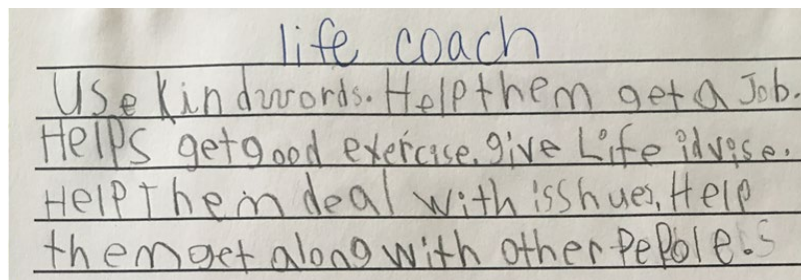 life coach
Use kind words. Help them get a Job.
Helps get good exercise. give Life idvise.
Help Them deal with isshues, Help
them get along with other Pepole.s